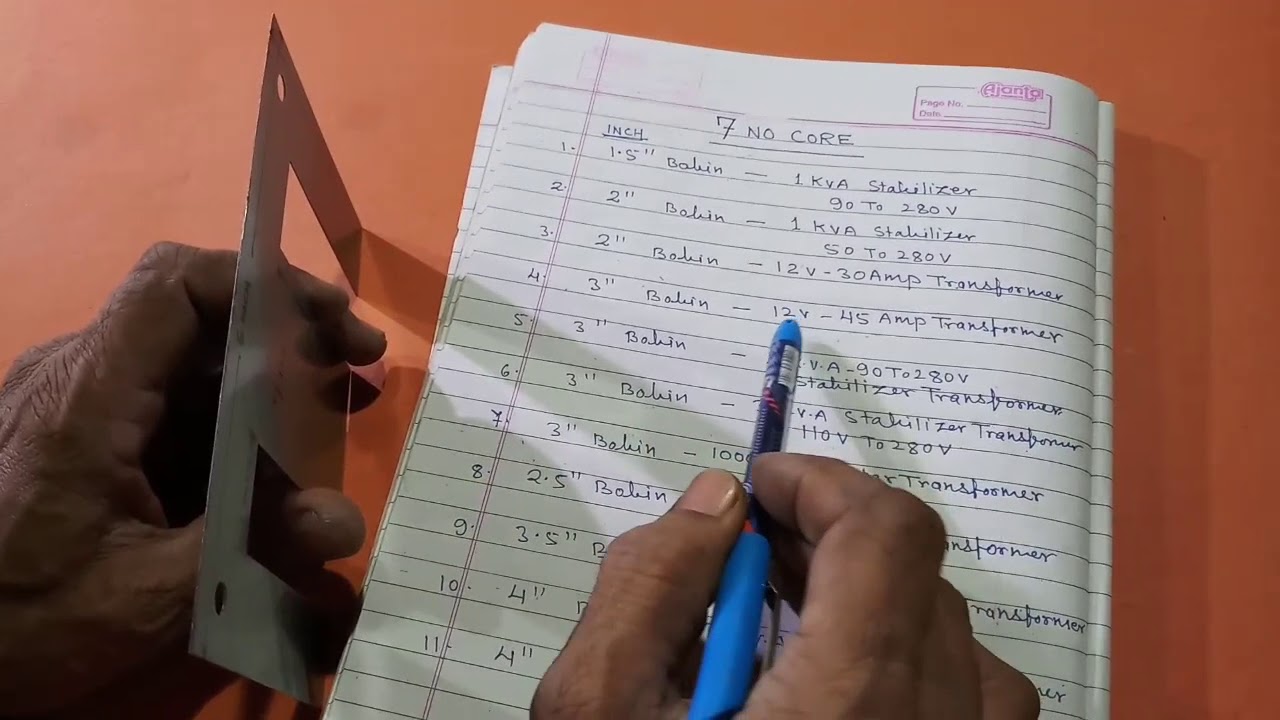 Ajanta
Page No.
Date
7 NO CORE
INCH
1. 1.5" Bobin — 1 KVA Stabilizer
90 To 280V
2. 2" Bobin — 1 KVA Stabilizer
50 To 280V
3. 2" Bobin — 12V - 30Amp Transformer
4. 3" Bobin — 12V - 45 Amp Transformer
5. 3" Bobin — .V.A - 90 To 280V
Stabilizer Transformer
6. 3" Bobin — V.A Stabilizer Transformer
110V To 280V
7. 3" Bobin — Transformer
8. 2.5" Bobin
9. 3.5"
10. 4"
11. 4"